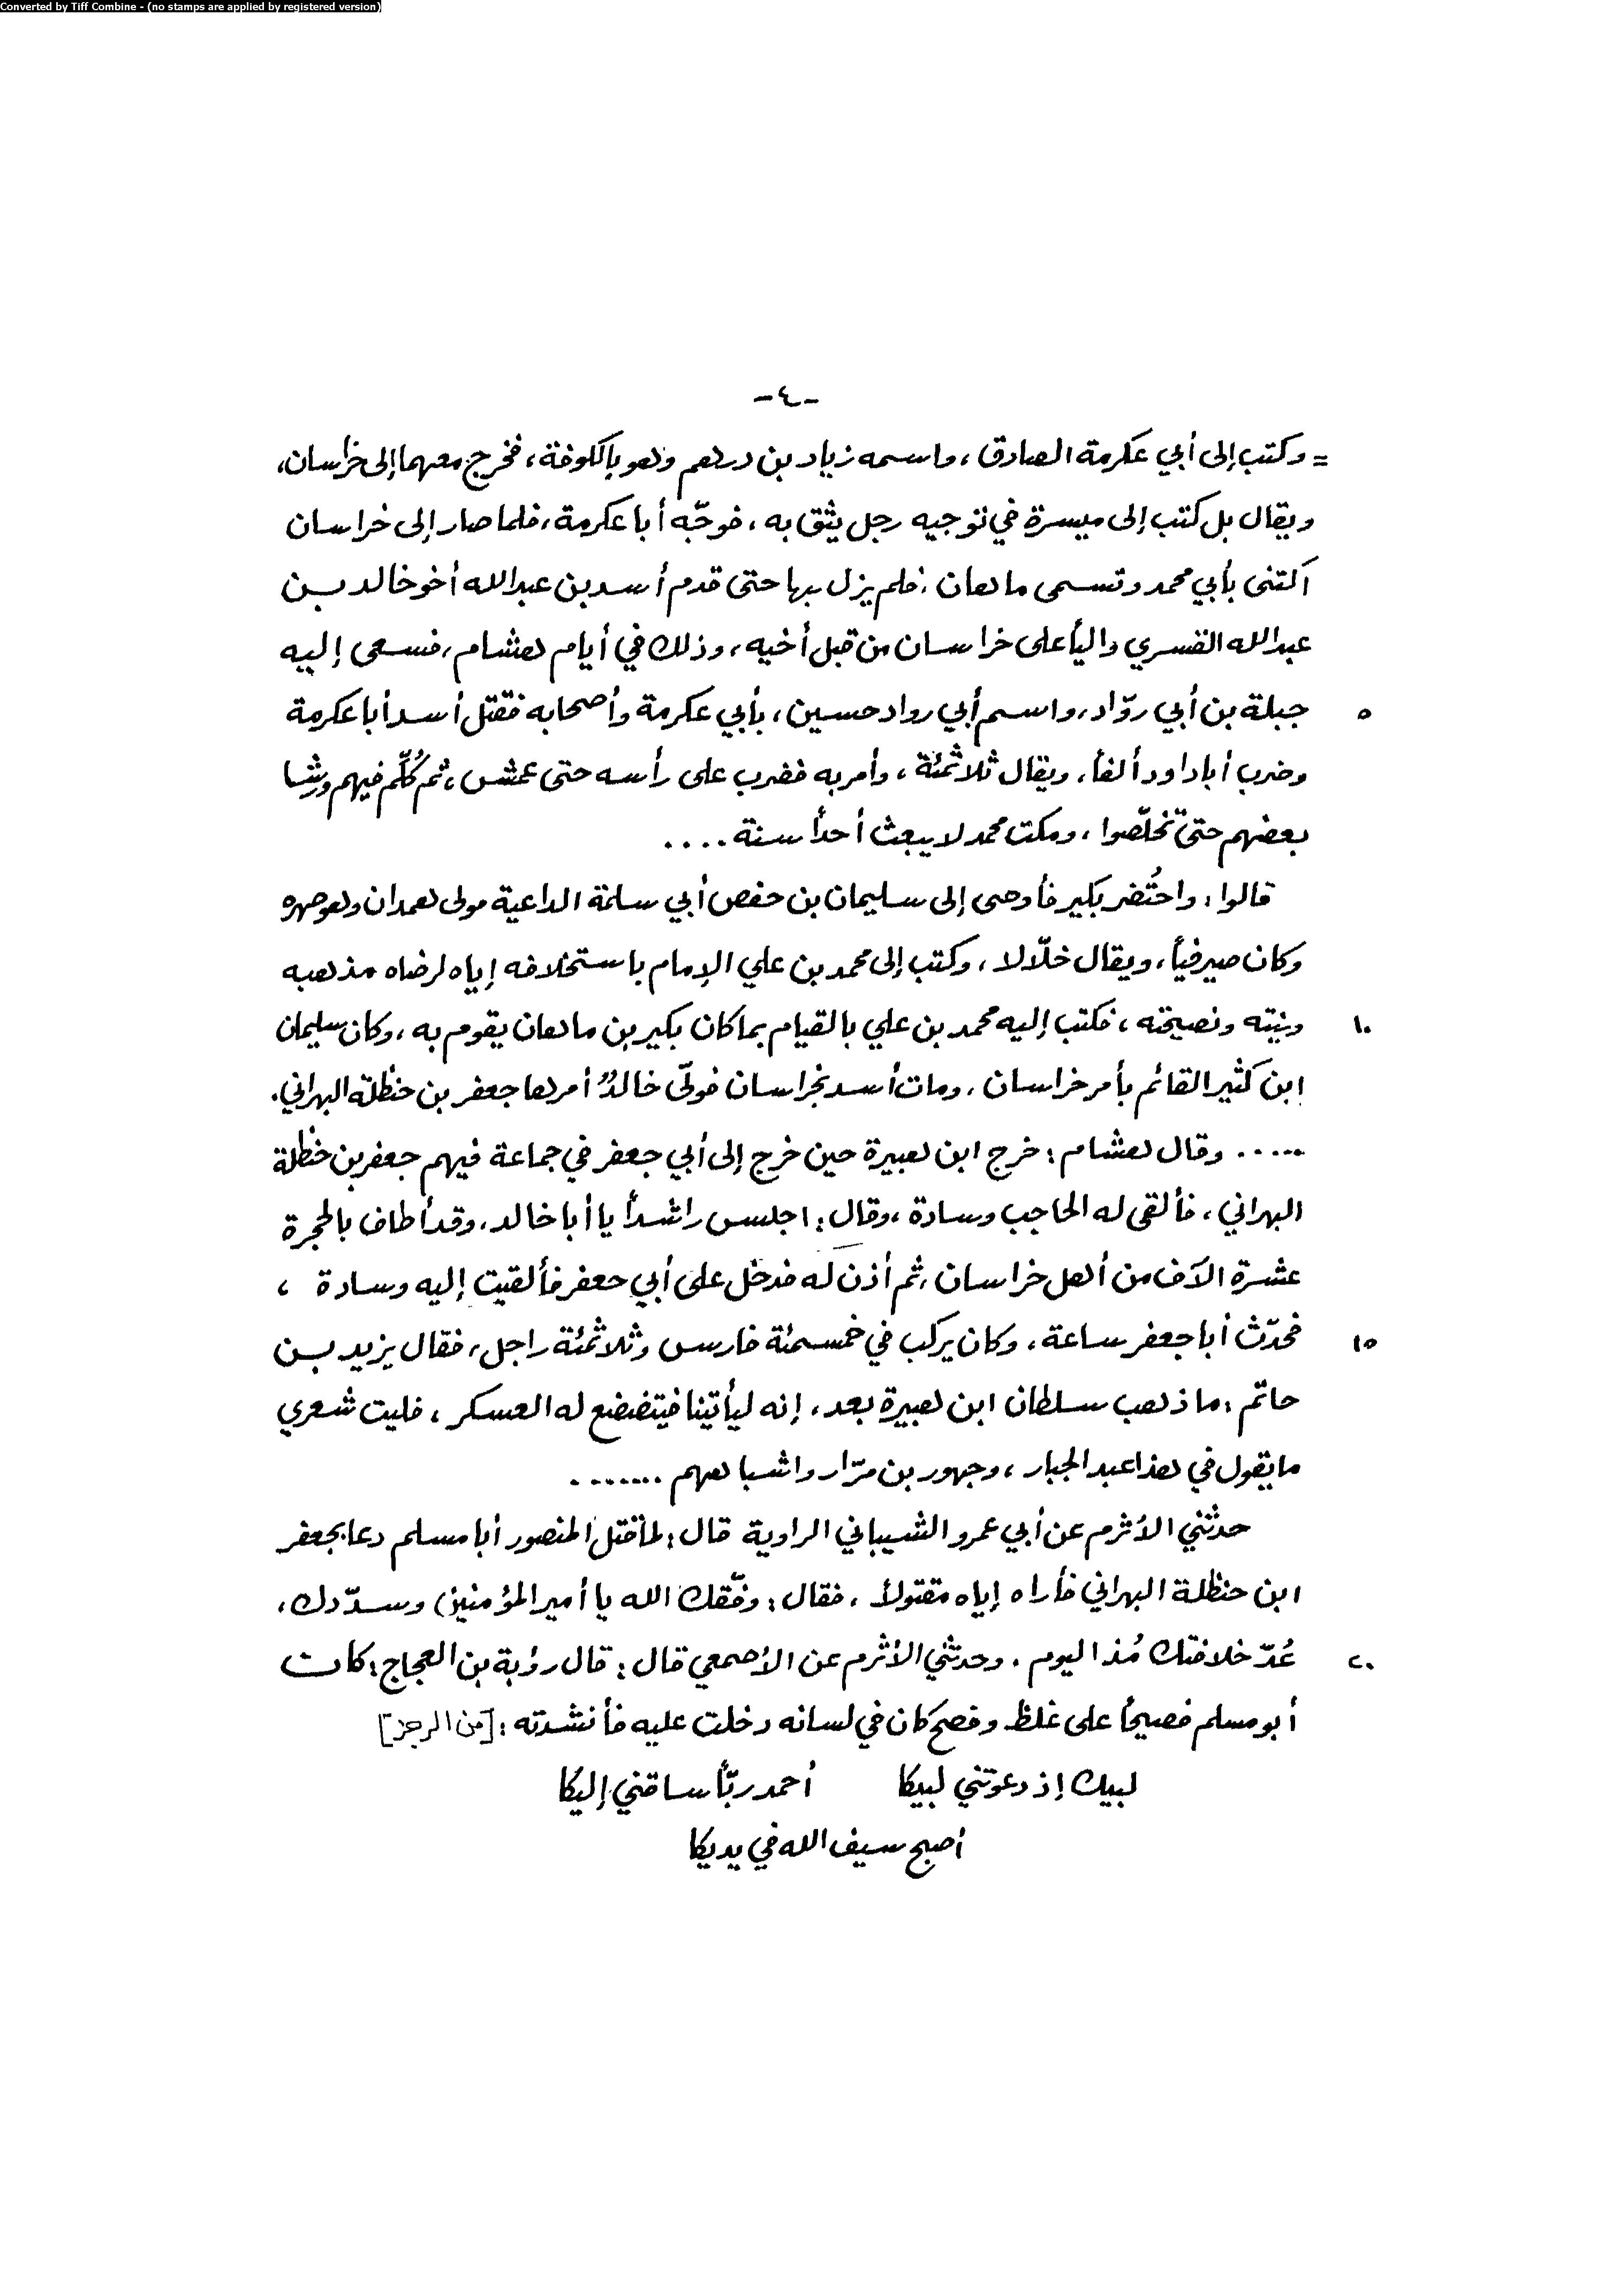 Converted by Tiff Combine - (no stamps are applied by registered version)
-٤-
= وكتب إلى أبي عكرمة الصادق، واسمه زياد بن درهم وهو بالكوفة، فخرج معهما إلى خراسان،
ويقال بل كتب إلى ميسرة في توجيه رجل يثق به، فوجّه أبا عكرمة، فلما صار إلى خراسان
اكتنى بأبي محمد وتسمى ماهان، فلم يزل بها حتى قدم أسد بن عبد الله أخو خالد بن
عبد الله القسري والياً على خراسان من قبل أخيه، وذلك في أيام هشام، فسعى إليه
٥ جبلة بن أبي روّاد، واسم أبي رواد حسين، بأبي عكرمة وأصحابه فقتل أسد أبا عكرمة
وضرب أبا داود ألفاً، ويقال ثلاثمئة، وأمر به فضرب على رأسه حتى عمش، ثم كُلّم فيهم ورشا
بعضهم حتى تخلّصوا، ومكث محمد لا يبعث أحداً سنة ....
قالوا: واحتُضر بكير فأوصى إلى سليمان بن حفص أبي سلمة الداعية مولى همدان وهو صهره
وكان صيرفياً، ويقال خلّالا، وكتب إلى محمد بن علي الإمام باستخلافه إياه لرضاه مذهبه
١٠ ونيته ونصيحته، فكتب إليه محمد بن علي بالقيام بما كان بكير بن ماهان يقوم به، وكان سليمان
ابن كثير القائم بأمر خراسان، ومات أسد بخراسان فولّى خالدٌ أمرها جعفر بن حنظلة البهراني.
..... وقال هشام: خرج ابن هبيرة حين خرج إلى أبي جعفر في جماعة فيهم جعفر بن حنظلة
البهراني، فألقى له الحاجب وسادة، وقال: اجلس راشداً يا أبا خالد، وقد أطاف بالحجرة
عشرة الآف من أهل خراسان، ثم أذن له فدخل على أبي جعفر فألقيت إليه وسادة ،
١٥ فحدّث أبا جعفر ساعة، وكان يركب في خمسمئة فارس وثلاثمئة راجل، فقال يزيد بن
حاتم: ما ذهب سلطان ابن هبيرة بعد، إنه ليأتينا فيتضضع له العسكر، فليت شعري
ما يقول في هذا عبد الجبار، وجهور بن مرّار واشباههم .......
حدثني الأثرم عن أبي عمرو الشيباني الراوية قال: لما قتل المنصور أبا مسلم دعا بجعفر
ابن حنظلة البهراني فأراه إياه مقتولاً، فقال: وفّقك الله يا أمير المؤمنين وسدّدك،
٢٠ عُدّ خلافتك مُذ اليوم. وحدثني الأثرم عن الأصمعي قال: قال رؤبة بن العجاج: كان
أبو مسلم فصيحاً على غلظ وفصح كان في لسانه دخلت عليه فأنشدته: [من الرجز]
لبيك إذ دعوتني لبيكا أحمد ربّاً ساقني إليكا
أصبح سيف الله في يديكا